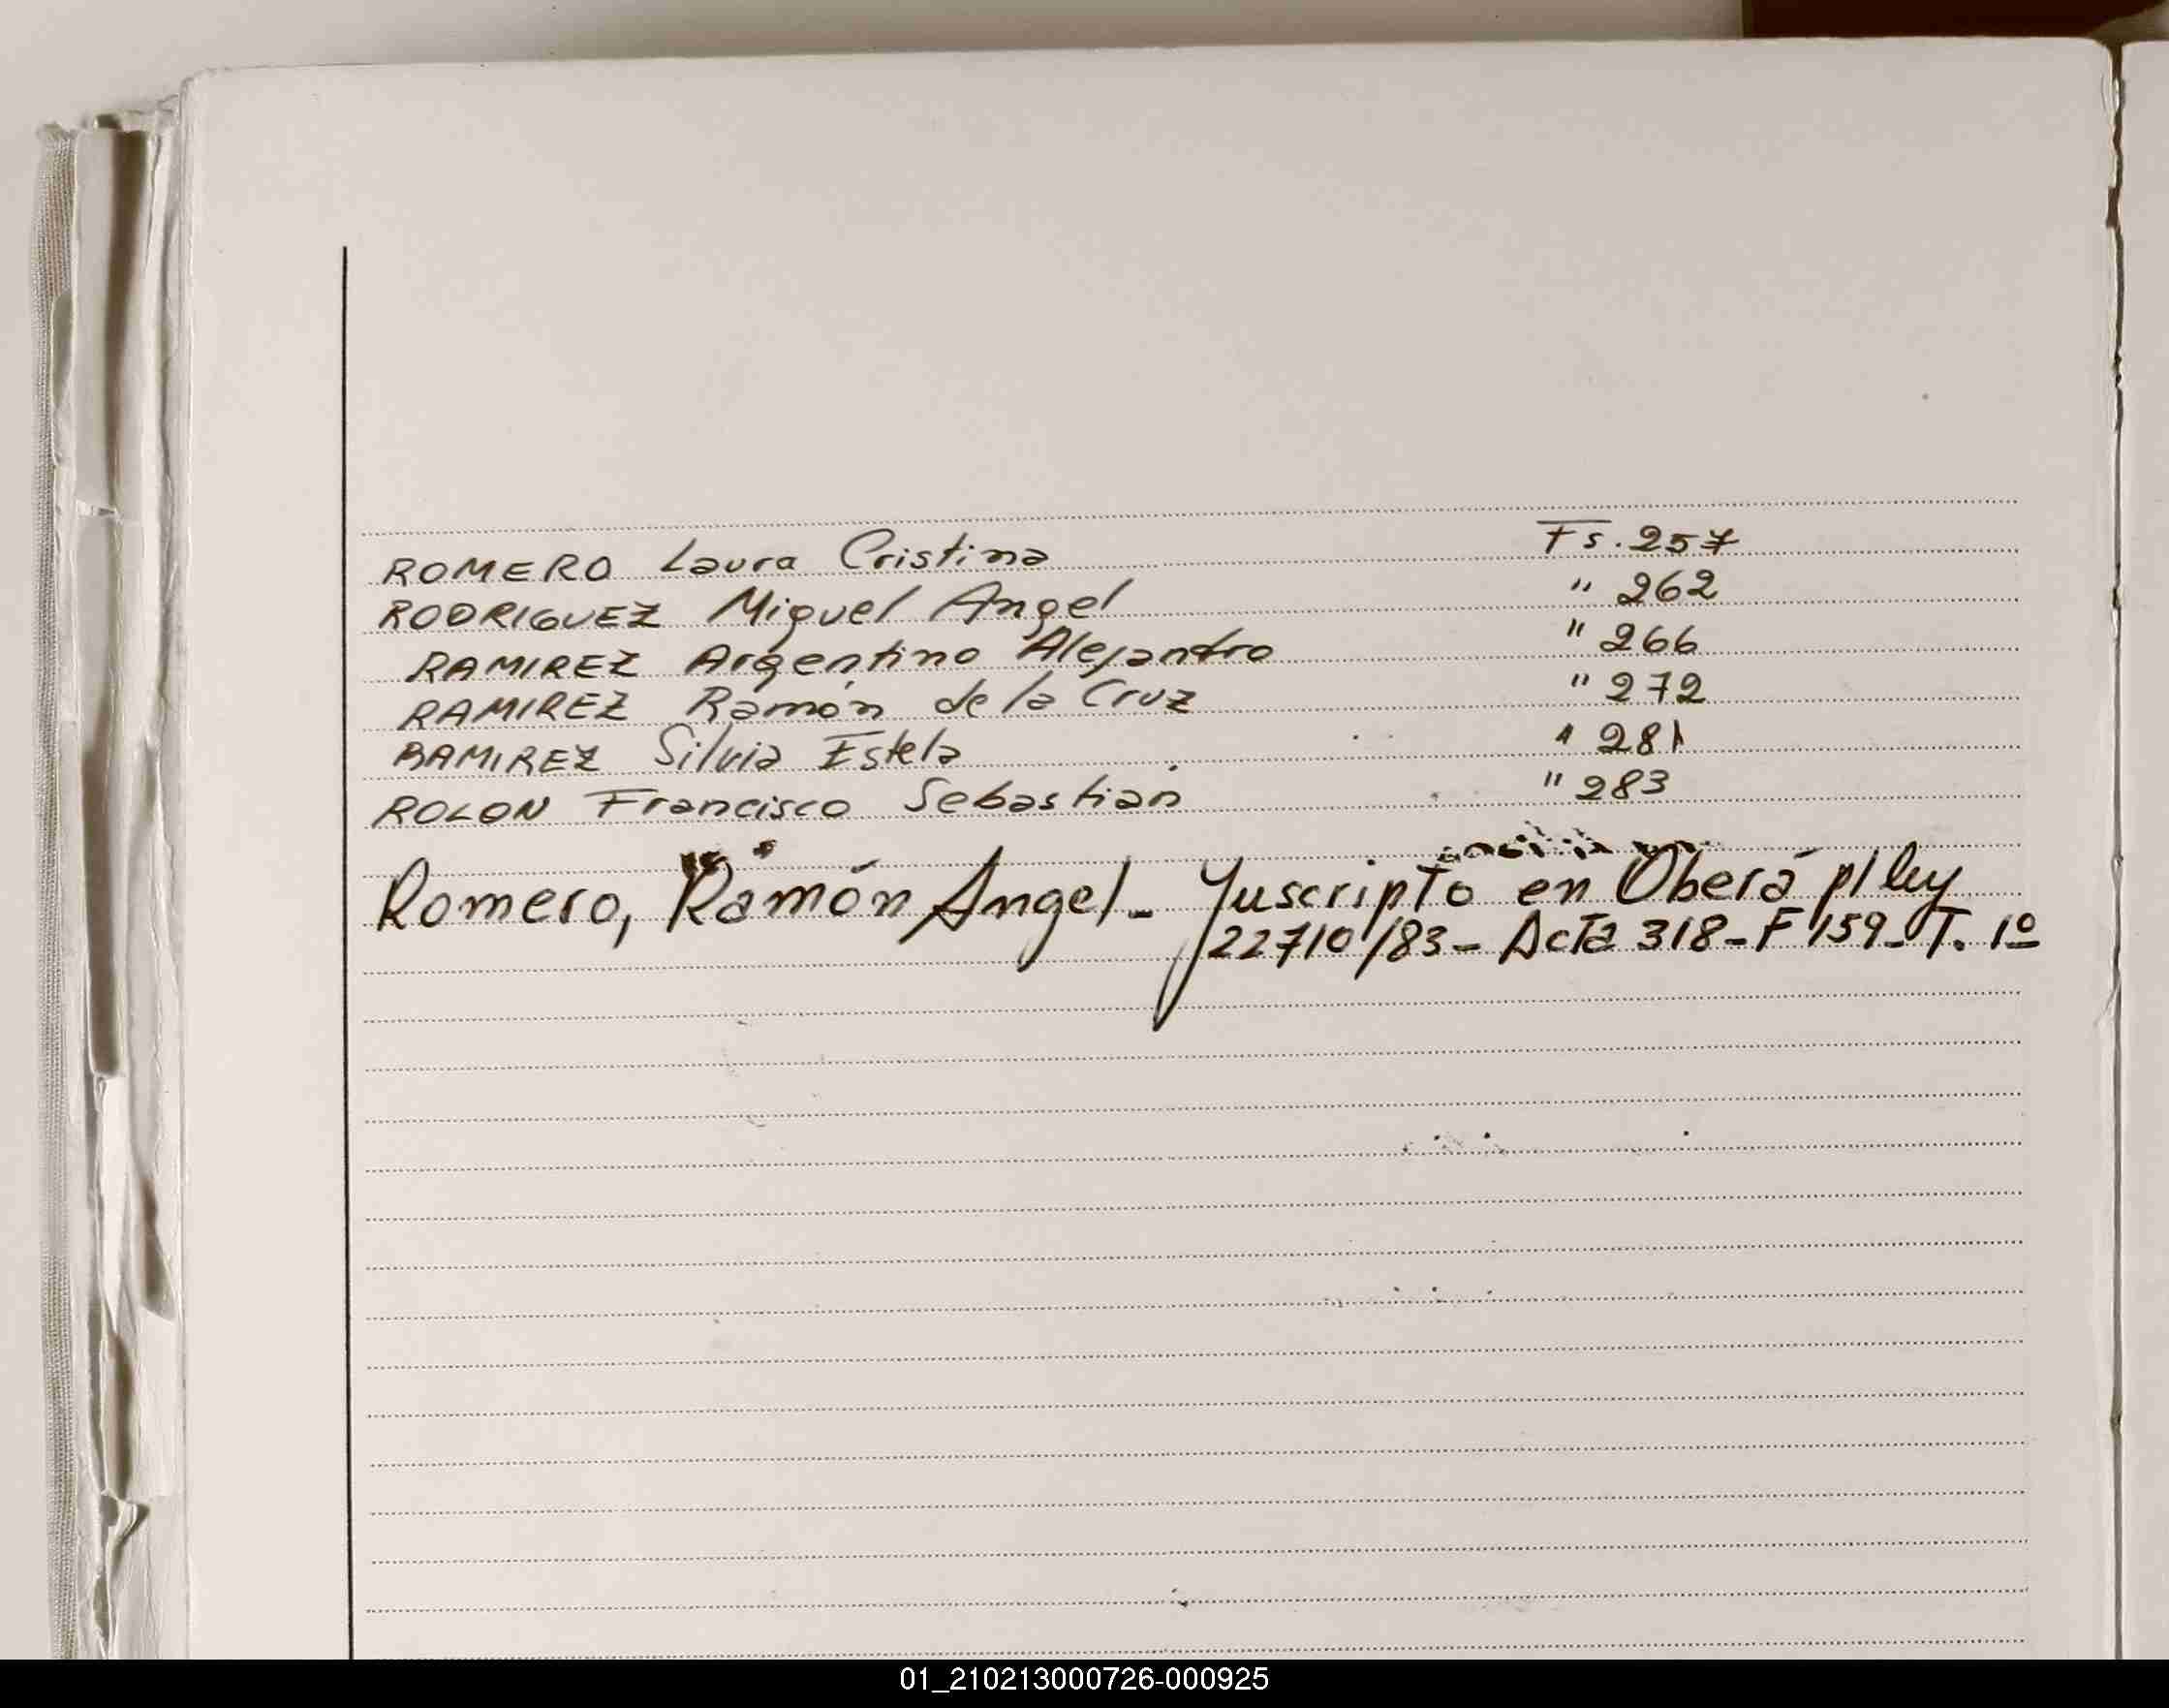 ROMERO Laura Cristina Fs. 257
RODRIGUEZ Miguel Angel " 262
RAMIREZ Argentino Alejandro " 266
RAMIREZ Ramón de la Cruz " 272
RAMIREZ Silvia Estela " 281
ROLON Francisco Sebastián " 283
Romero, Ramón Angel - Inscripto en Oberá p/ ley
22710/83 - Acta 318 - F 159 - T. 1º
01_210213000726-000925